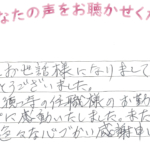 なたの声をお聴かせくだ
お世話様になりまして
とうございました。
須っ寺の住職様のお勤
に感動いたしました。また
色々な心づかい感謝申し